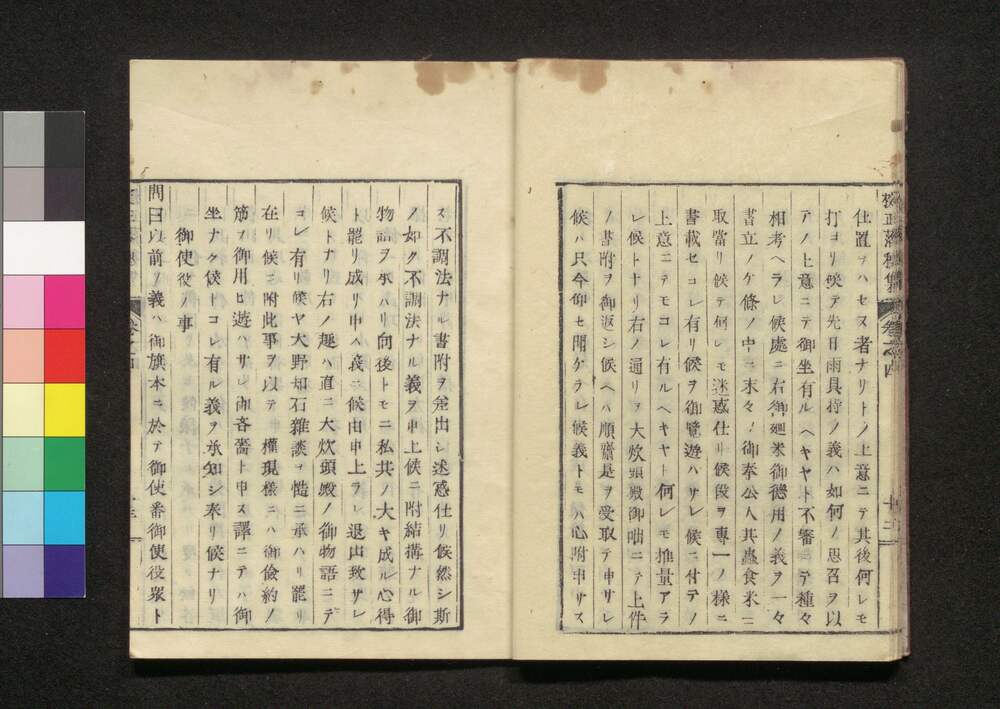 仕置ヲハセヌ者ナリトノ上意ニテ其後何レモ
打ヨリ候テ先日雨具持ノ義ハ如何ノ思召ヲ以
アノ上意ニテ御坐有ルヘキヤト不審ニテ種々
相考ヘラレ候處ニ右御廻米御徳用ノ義ヲ一々
書立ノケ條ノ中ニ末々ノ御奉公人共蟲食米ニ
取當リ候テ何レモ迷惑仕リ候段ヲ專一ノ樣ニ
書載セコレ有リ候ヲ御覽遊ハサレ候ニ付テノ
上意ニテモコレ有ルヘキヤト何レモ推量アラ
レ候トナリ右ノ通リヲ大炊頭殿御咄ニテ上件
ノ書附ヲ御返シ候ヘハ順齋是ヲ受取テ申サレ
候ハ只今仰セ聞ケラレ候義トモハ心附申サス
ス不調法ナル書附ヲ差出シ迷惑仕リ候然シ斯
ノ如ク不調法ナル義ヲ申上候ニ附結搆ナル御
物語ヲ承ハリ向後トモニ私共ノ大キ成ル心得
ト罷リ成リ申ヘ義ニ候由申上ラレ退出致サレ
候トナリ右ノ趣ハ直ニ大炊頭殿ノ御物語ニテ
コレ有リ候ヤ大野知石雜談ヲ慥ニ承ハリ罷リ
在リ候ニ附此事ヲ以テ權現樣ニハ御儉約ノ
筋ヲ御用ヒ遊ハサレ御吝嗇ト申ス譯ニテハ御
坐ナク候トコレ有ル義ヲ承知シ奉リ候ナリ
御使役ノ事
問曰以前ノ義ハ御旗本ニ於テ御使番御使役衆ト